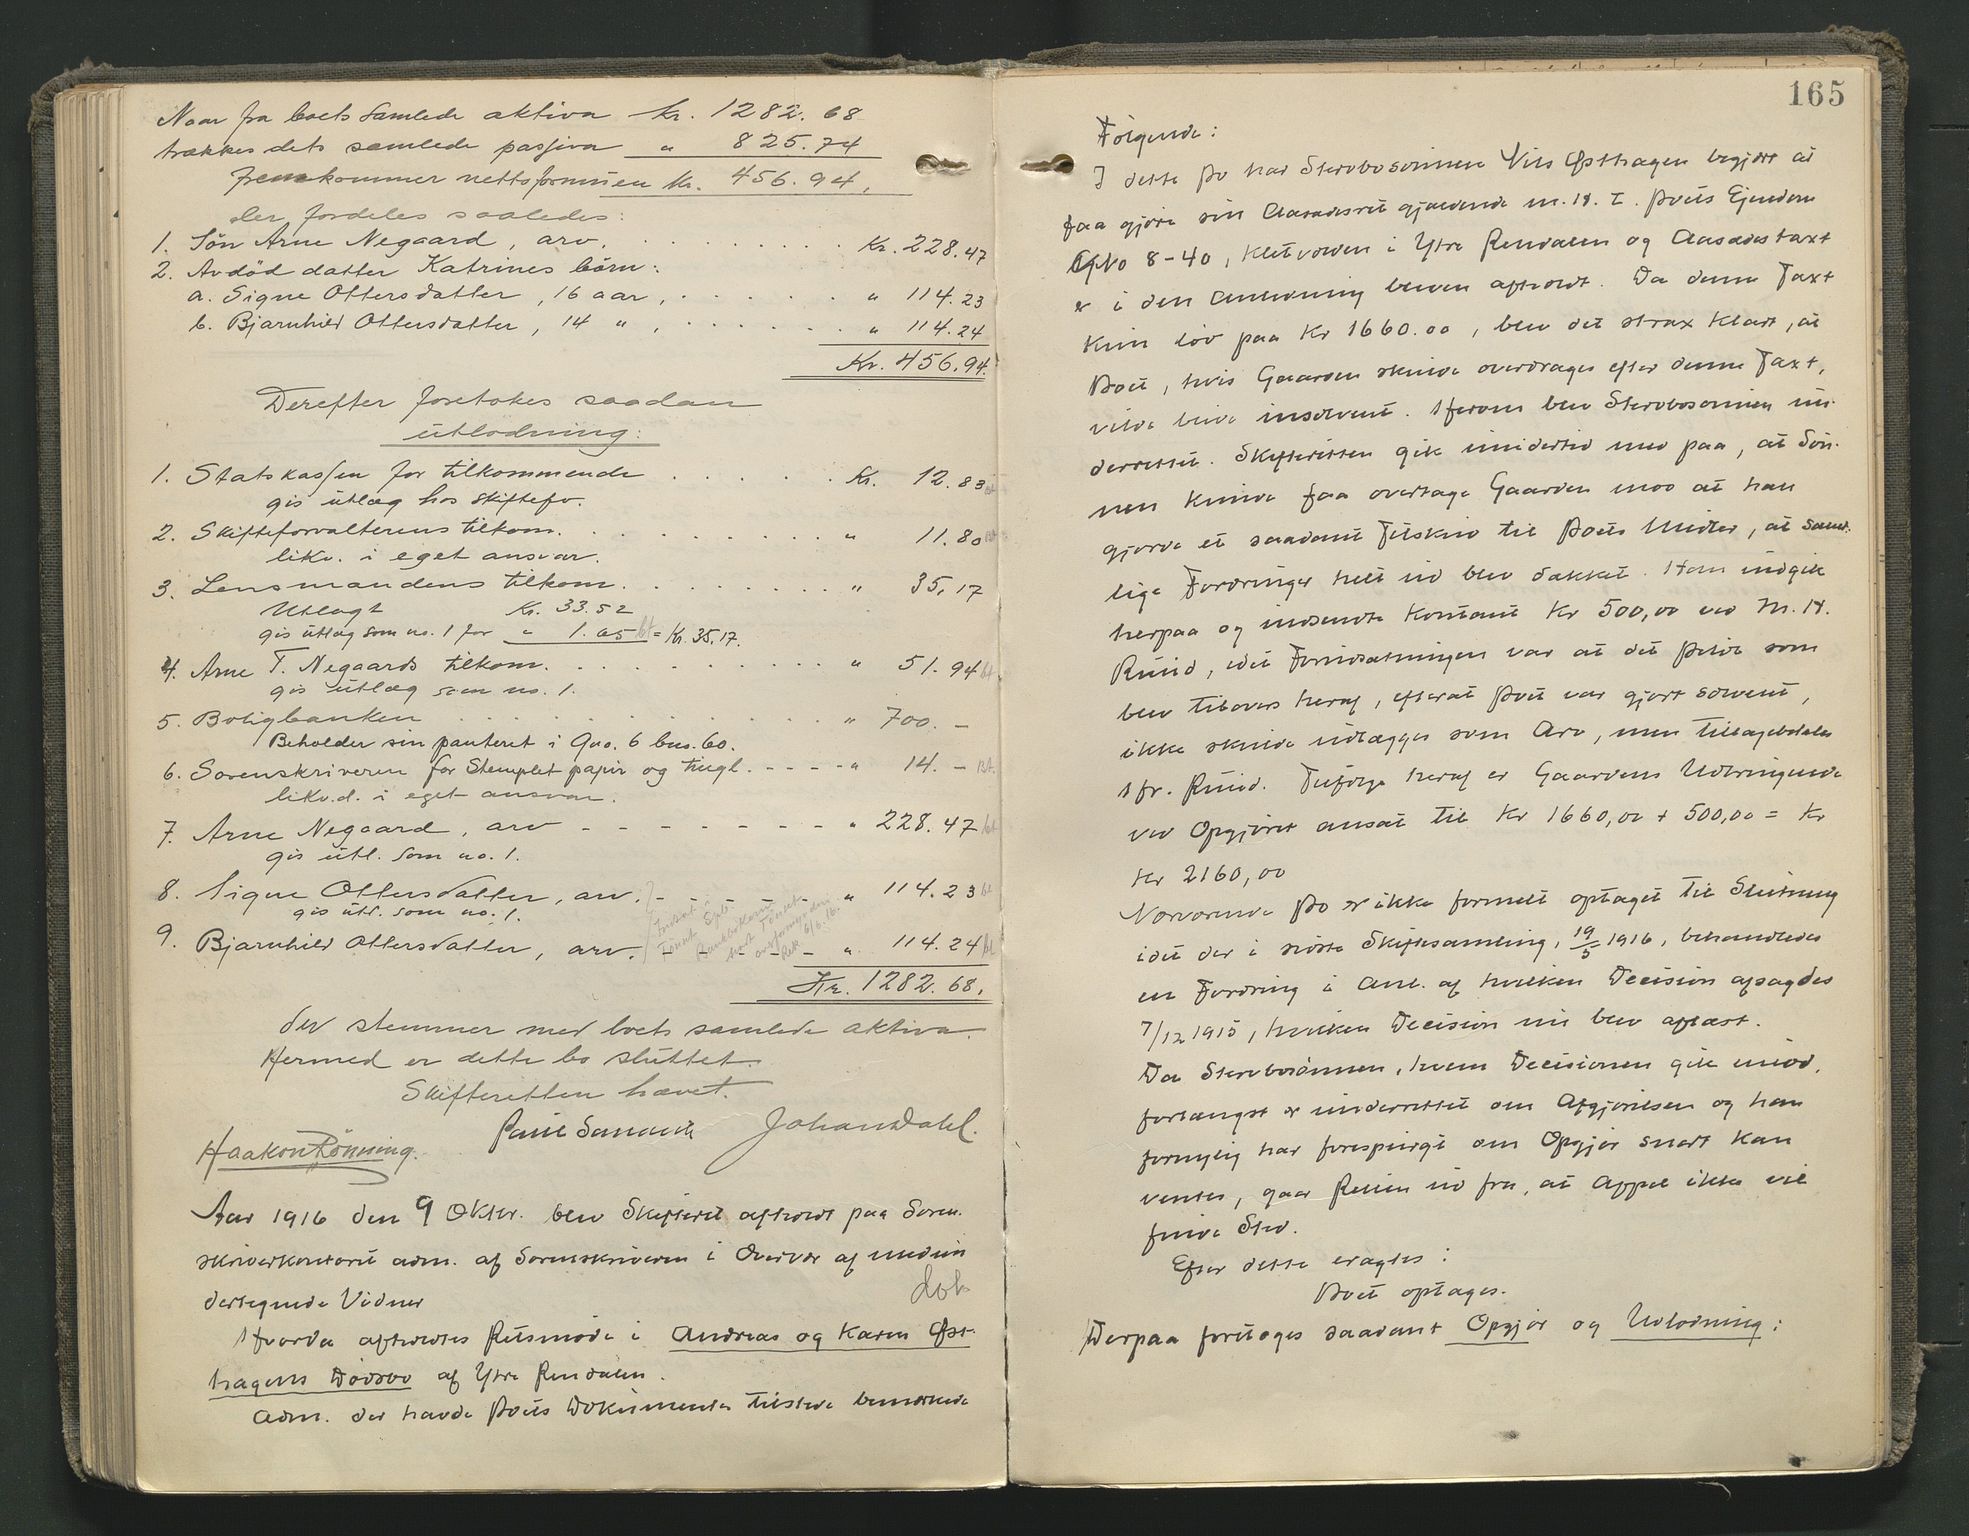 Naar fra boets samlede aktiva Kr. 1282.68
trækkes dets samlede passiva " 825.74
fremkommer nettoformuen Kr. 456.94,
der fordeles saaledes:
1. Søn Arne Negaard, arv. Kr. 228.47
2. Avdød datter Katrines børn:
a. Signe Ottersdatter, 16 aar, " 114.23
b. Bjarnhild Ottersdatter, 14 " , " 114.24
Kr. 456.94.
Derefter foretokes saadan
utlodning:
1. Statskassen for tilkommende Kr. 12.83
gis utlæg hos skiftefv.
2. Skifteforvalterens tilkom. " 11.80
likv. i eget ansvar.
3. Lensmandens tilkom. " 35,17
Utlagt Kr. 33.52
gis utlæg som no. 1 for " 1.65 = Kr. 35,17.
4. Arne T. Negaards tilkom. " 51.94
gis utlæg som no. 1.
5. Boligbanken " 700.-
Beholder sin panteret i Gno. 6 bno. 60.
6. Sorenskriveren for Stemplet papir og tingl. " 14.-
likv.d. i eget ansvar.
7. Arne Negaard, arv " 228.47
gis utl. som no. 1.
8. Signe Ottersdatter, arv. " 114.23
gis utl. som no. 1.
9. Bjarnhild Ottersdatter, arv. " 114.24
Kr. 1282.68.
der stemmer med boets samlede aktiva.
Hermed er dette bo sluttet.
Skifteretten hævet.
Haakon Rønning. Johan Dahl.
Aar 1916 den 9 Oktbr. blev Skifteret afholdt paa Soren-
skriverkontoret adm. af Sorenskriveren i Overvær af undein
dertegnede Vidner
Hvorda afholdtes Retsmøde i Andreas og Karen Øst-
hagens Dødsbo af Ytre Rendalen.
Adm. der havde Boets Dokumenter tilstede bemærkede
165
Følgende:
I dette Bo har Stervbosønnen Nils Østhagen begjært at
faa gjøre sin Aasædesret gjældende m.H.t. Boets Eiendom
GNo 8-40, Kletvolden i Ytre Rendalen og Aasædestaxt
er i den Anledning bleven afholdt. Da denne Taxt
kun lød paa Kr 1660.00, blev det strax klart, at
Boet, hvis Gaarden skulde overdrages efter denne Taxt,
vilde blive insolvent. Herom blev Stervbosønnen un-
derrettet. Skifteretten gik imidlertid med paa, at Søn-
nen kunde faa overtage Gaarden mod at han
gjorde et saadant Tilskud til Boets Midler, at samt-
lige Fordringer helt ud blev dækket. Han indgik
herpaa og indsendte kontant Kr 500,00 ved M. H.
Ruud, idet Forudsætningen var at det Beløb som
blev tilovers heraf, efterat Boet var gjort solvent,
ikke skulde udlægges som Arv, men tilbagebetales
Hr. Ruud. Tilfølge heraf er Gaardens Udbringende
ved Opgjøret ansat til Kr 1660,00 + 500,00 = Kr
Kr 2160,00
Nærværende Bo er ikke formelt optaget til Slutning
idet der i sidste Skiftesamling, 19/5 1916, behandledes
en Fordring i Anl. af hvilken Decision afsagdes
7/12 1915, hvilken Decision nu blev oplæst.
Da Stervbosønnen, hvem Decisionen gik imod,
forlængst er underrettet om Afgjørelsen og han
formelig har forespurgt om Opgjør snart kan
ventes, gaar Retten ud fra, at Appel ikke vil
finde Sted.
Efter dette eragtes:
Boet optages.
Derpaa foretoges saadant Opgjør og Udlodning: